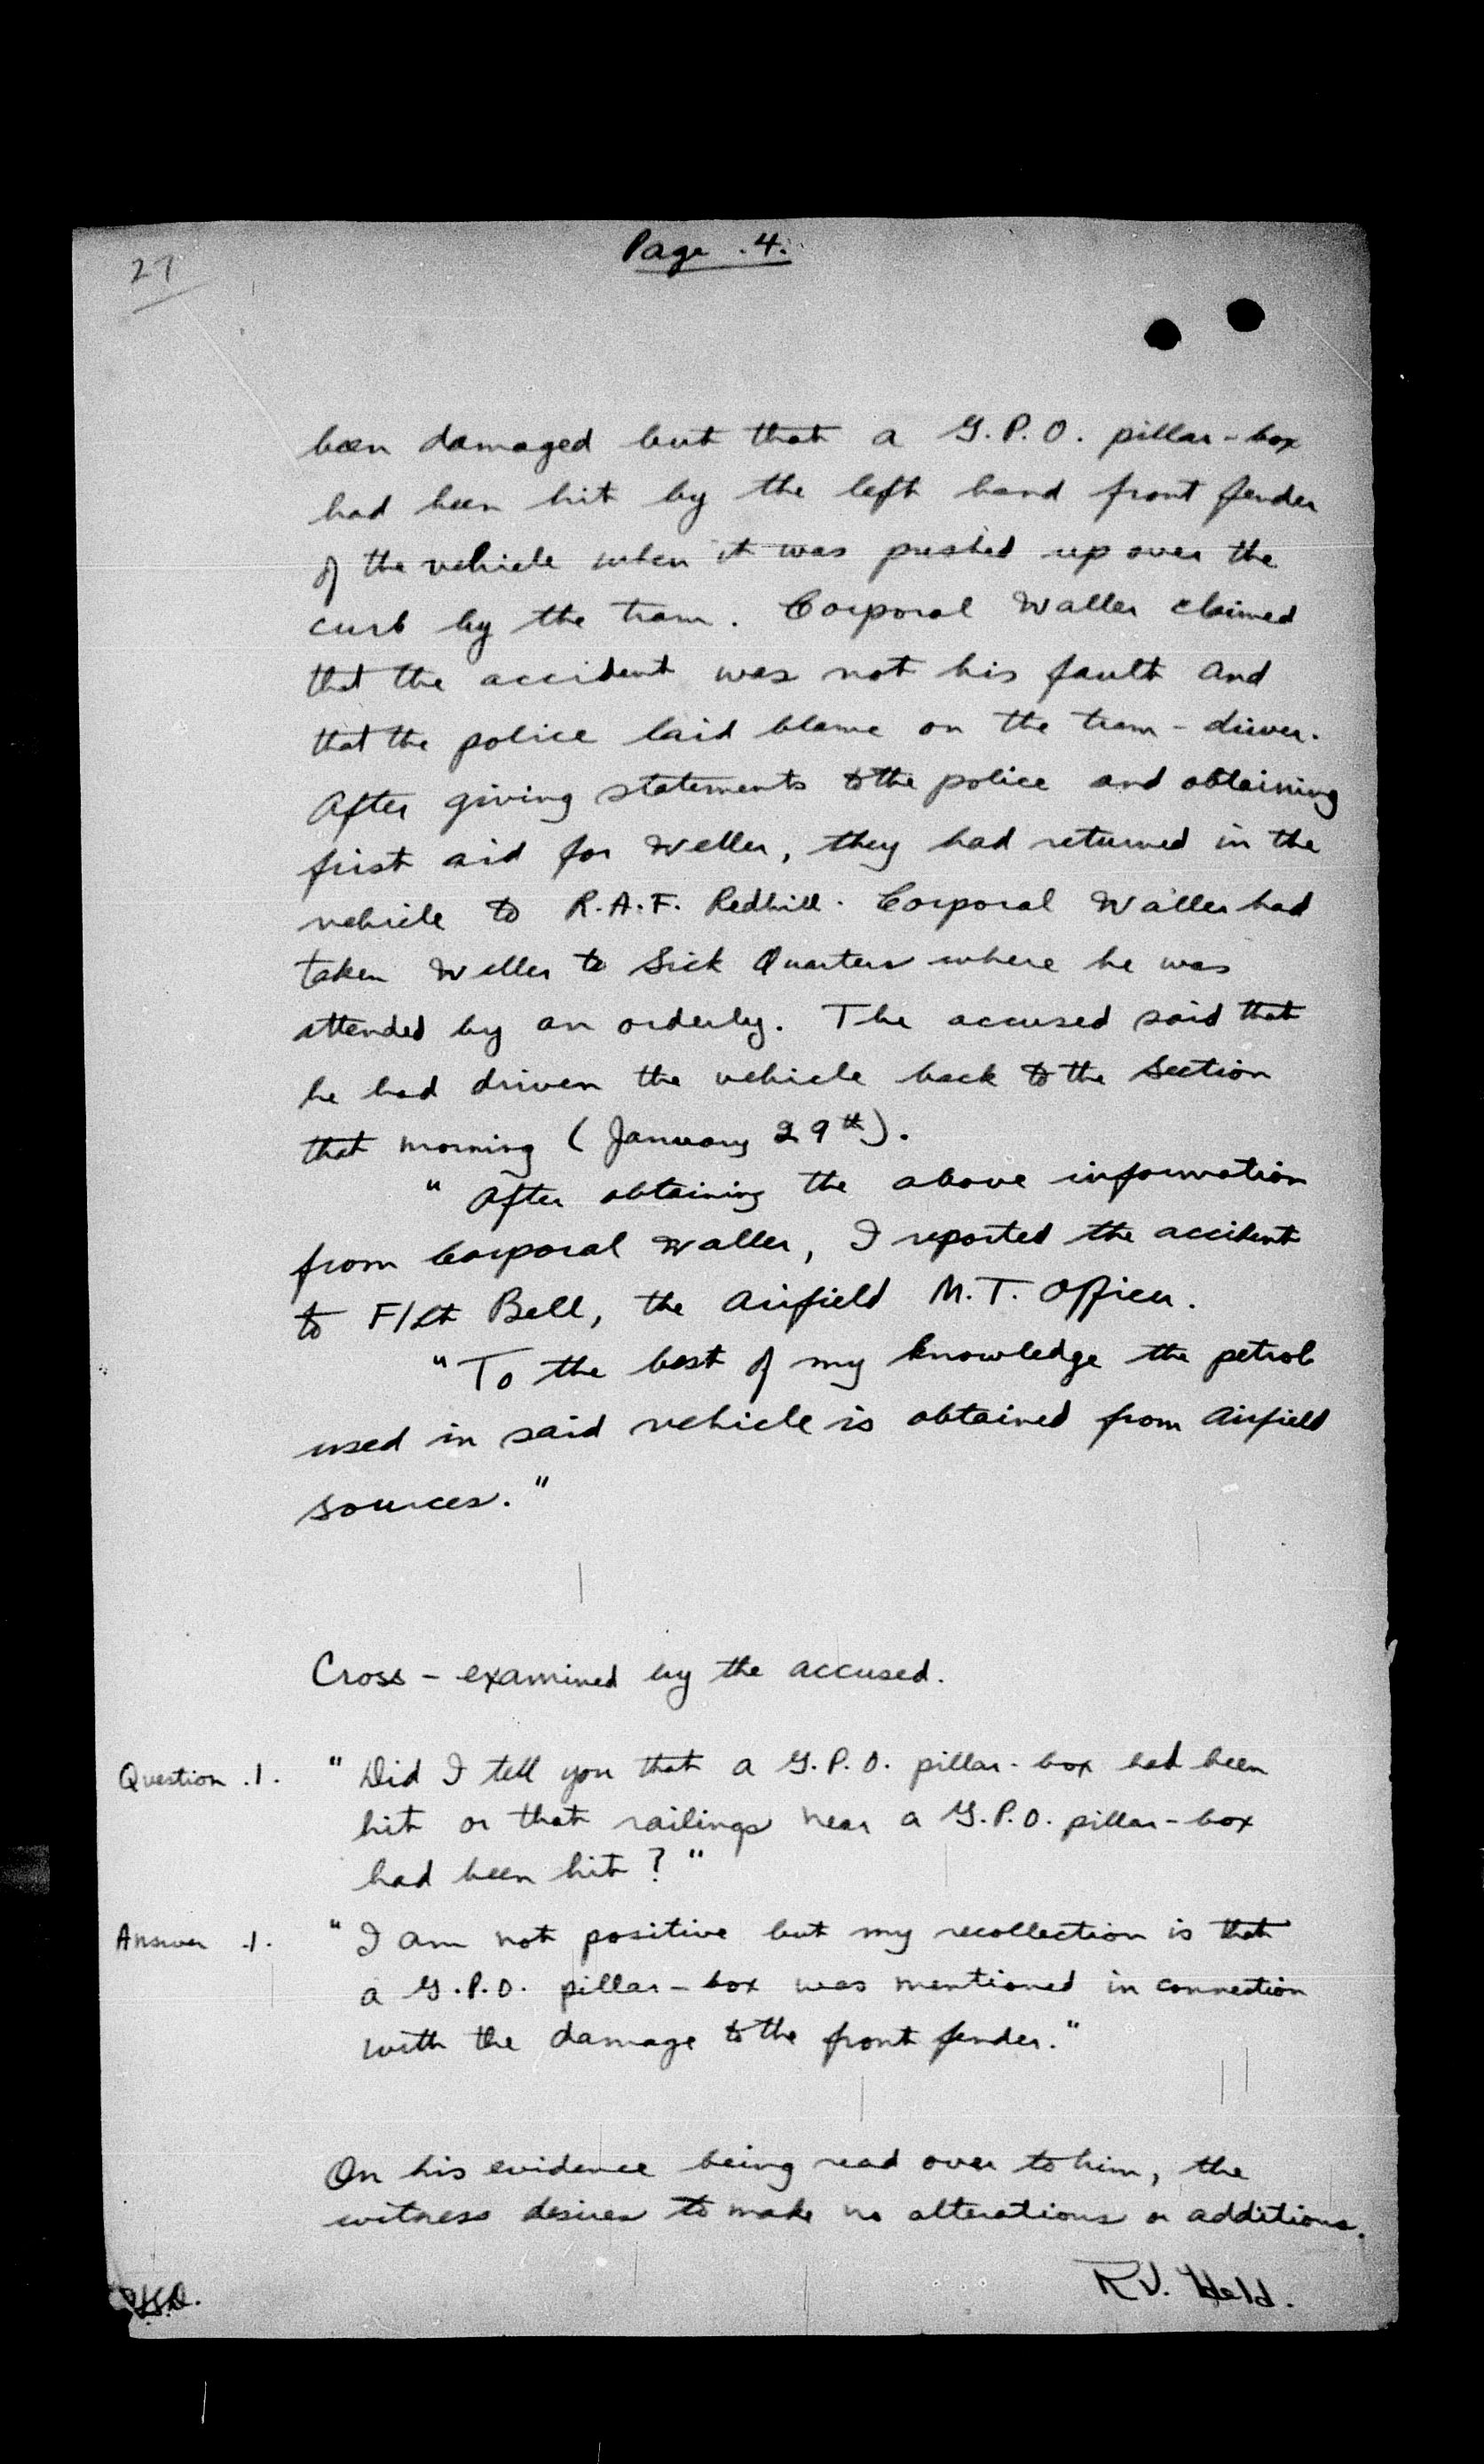 27
Page .4.
been damaged but that a G.P.O. pillar-box
had been hit by the left hand front fender
of the vehicle when it was pushed up over the
curb by the tram. Corporal Waller claimed
that the accident was not his fault and
that the police laid blame on the tram-driver.
After giving statements to the police and obtaining
first aid for Weller, they had returned in the
vehicle to R.A.F. Redhill. Corporal Waller had
taken Weller to Sick Quarters where he was
attended by an orderly. The accused said that
he had driven the vehicle back to the Section
that morning (January 29th).
" After obtaining the above information
from Corporal Waller, I reported the accident
to F/Lt Bell, the Airfield M.T. Officer.
"To the best of my knowledge the petrol
used in said vehicle is obtained from Airfield
sources."
Cross-examined by the accused.
Question .1. "Did I tell you that a G.P.O. pillar-box had been
hit or that railings near a G.P.O. pillar-box
had been hit?"
Answer .1. "I am not positive but my recollection is that
a G.P.O. pillar-box was mentioned in connection
with the damage to the front fender."
On his evidence being read over to him, the
witness desires to make no alterations or additions.
R.V. Held.